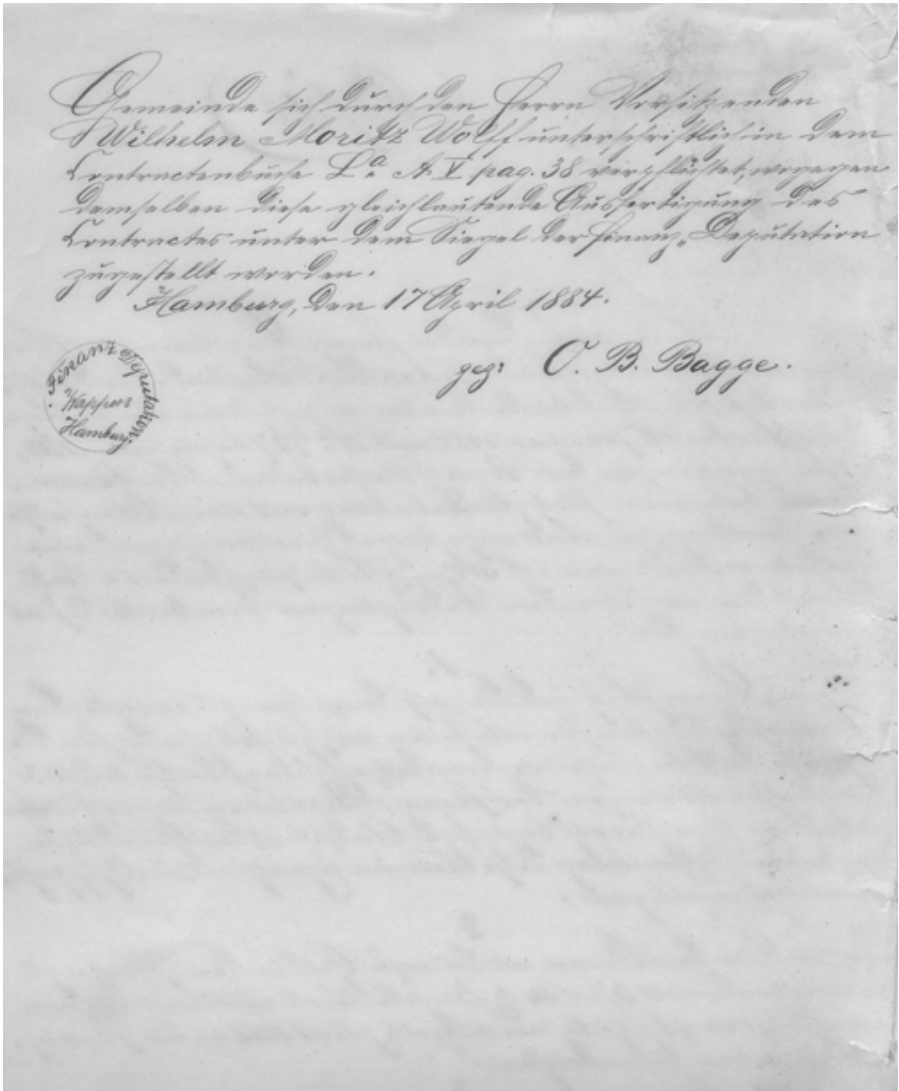 Gemeinde sich durch den Herrn Vorsitzenden
Wilhelm Moritz Wolff unterschriftlich in dem
Contractenbuche La. A V pag. 38 verpflichtet, wogegen
demselben diese gleichlautende Ausfertigung des
Contractes unter dem Siegel der Finanz-Deputation
zugestellt worden.
Hamburg, den 17 April 1884.
gez: O. B. Bagge.
Finanz Deputation
Wappen
Hamburg